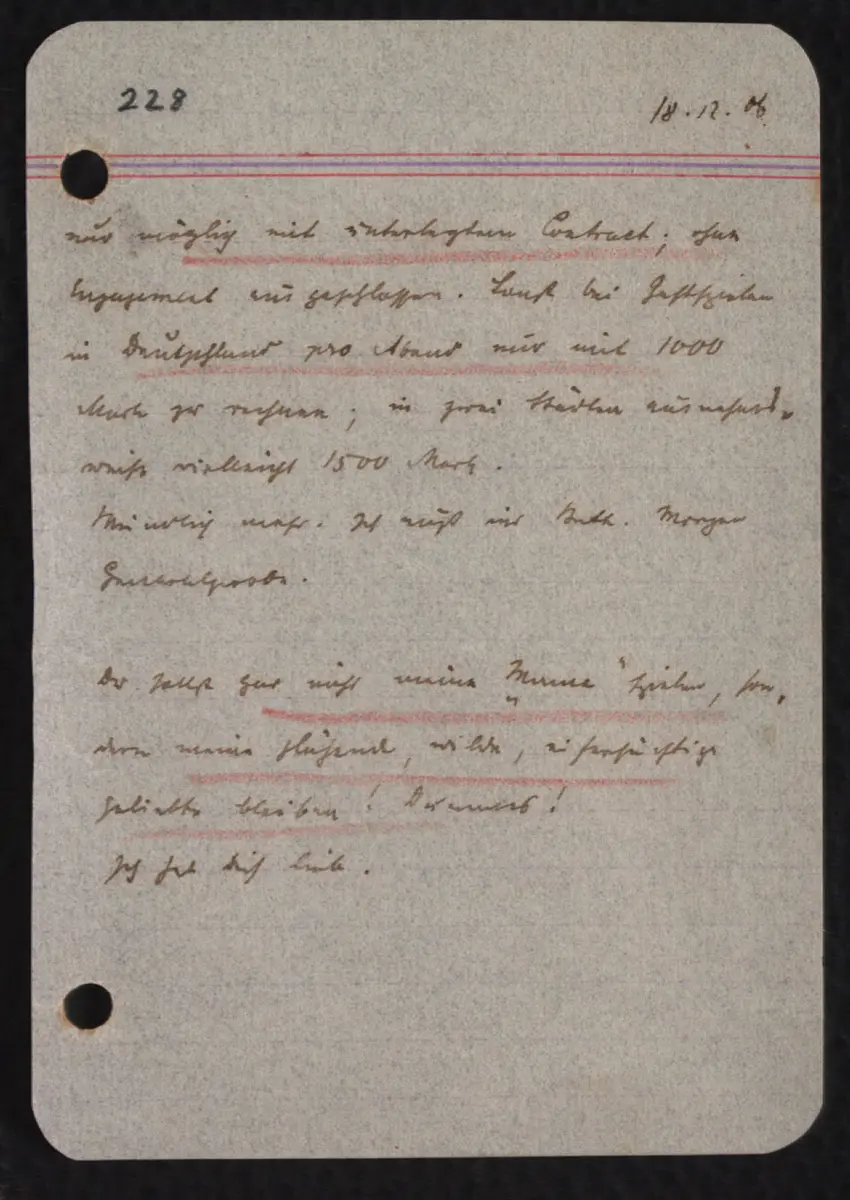 228
18.12.06
nur möglich mit unterlegtem Contract; ohne
Engagement ausgeschlossen. Sonst bei Gastspielen
in Deutschland pro Abend nur mit 1000
Mark zu rechnen; in zwei Städten ausnahms-
weise vielleicht 1500 Mark.
Mündlich mehr. Ich muß ins Morgen
Generalprobe.
Du sollst gar nicht meine „Mama" spielen, son-
dern meine glühende, wilde, eifersüchtige
Geliebte bleiben!
Ich hab Dich lieb.